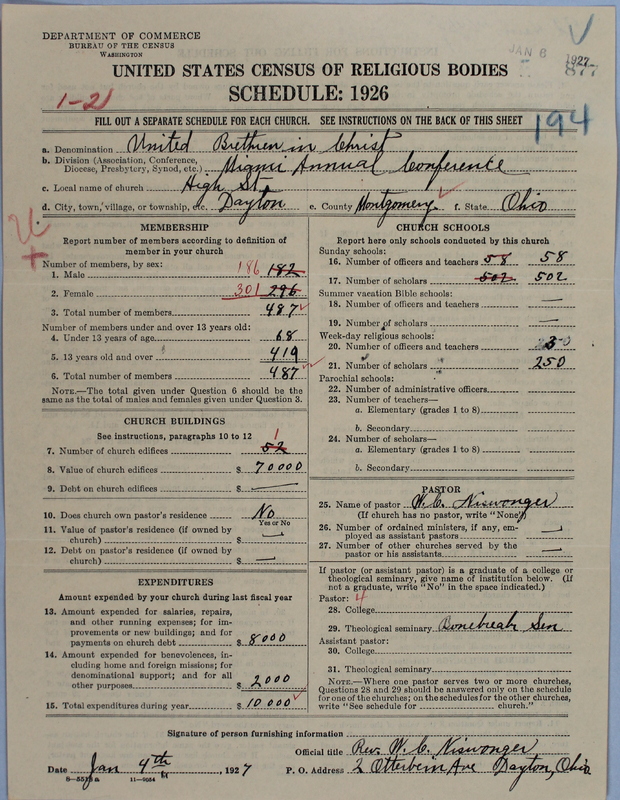 DEPARTMENT OF COMMERCE
BUREAU OF THE CENSUS
WASHINGTON
JAN 6 1927
877
UNITED STATES CENSUS OF RELIGIOUS BODIES
1-21
SCHEDULE: 1926
FILL OUT A SEPARATE SCHEDULE FOR EACH CHURCH. SEE INSTRUCTIONS ON THE BACK OF THIS SHEET
194
a. Denomination United Brethren in Christ
b. Division (Association, Conference, Diocese, Presbytery, Synod, etc.) Miami Annual Conference
c. Local name of church High St.
d. City, town, village, or township, etc. Dayton e. County Montgomery f. State Ohio
MEMBERSHIP
Report number of members according to definition of
member in your church
Number of members, by sex:
1. Male 186 182
2. Female 301 296
3. Total number of members 487
Number of members under and over 13 years old:
4. Under 13 years of age 68
5. 13 years old and over 419
6. Total number of members 487
NOTE.—The total given under Question 6 should be the
same as the total of males and females given under Question 3.
CHURCH BUILDINGS
See instructions, paragraphs 10 to 12
7. Number of church edifices 52 1
8. Value of church edifices $ 70000
9. Debt on church edifices $ —
10. Does church own pastor's residence No
Yes or No
11. Value of pastor's residence (if owned by
church) $ —
12. Debt on pastor's residence (if owned by
church) $ —
EXPENDITURES
Amount expended by your church during last fiscal year
13. Amount expended for salaries, repairs,
and other running expenses; for im-
provements or new buildings; and for
payments on church debt $ 8000
14. Amount expended for benevolences, in-
cluding home and foreign missions; for
denominational support; and for all
other purposes $ 2000
15. Total expenditures during year $ 10 000
CHURCH SCHOOLS
Report here only schools conducted by this church
Sunday schools:
16. Number of officers and teachers 58 58
17. Number of scholars 502 502
Summer vacation Bible schools:
18. Number of officers and teachers —
19. Number of scholars —
Week-day religious schools:
20. Number of officers and teachers
21. Number of scholars 250
Parochial schools:
22. Number of administrative officers
23. Number of teachers—
a. Elementary (grades 1 to 8)
b. Secondary
24. Number of scholars—
a. Elementary (grades 1 to 8)
b. Secondary
PASTOR
25. Name of pastor W. C. Niswonger
(If church has no pastor, write "None")
26. Number of ordained ministers, if any, em-
ployed as assistant pastors —
27. Number of other churches served by the
pastor or his assistants —
If pastor (or assistant pastor) is a graduate of a college or
theological seminary, give name of institution below. (If
not a graduate, write "No" in the space indicated.)
Pastor: 4
28. College
29. Theological seminary Bonebreak Sem
Assistant pastor:
30. College
31. Theological seminary
NOTE.—Where one pastor serves two or more churches,
Questions 28 and 29 should be answered only on the schedule
for one of the churches; on the schedules for the other churches,
write "See schedule for ______ church."
Signature of person furnishing information
Official title Rev. W. C. Niswonger
Date Jan 4th, 1927 P. O. Address 2 Otterbein Ave Dayton, Ohio
8—5513a 11—9054